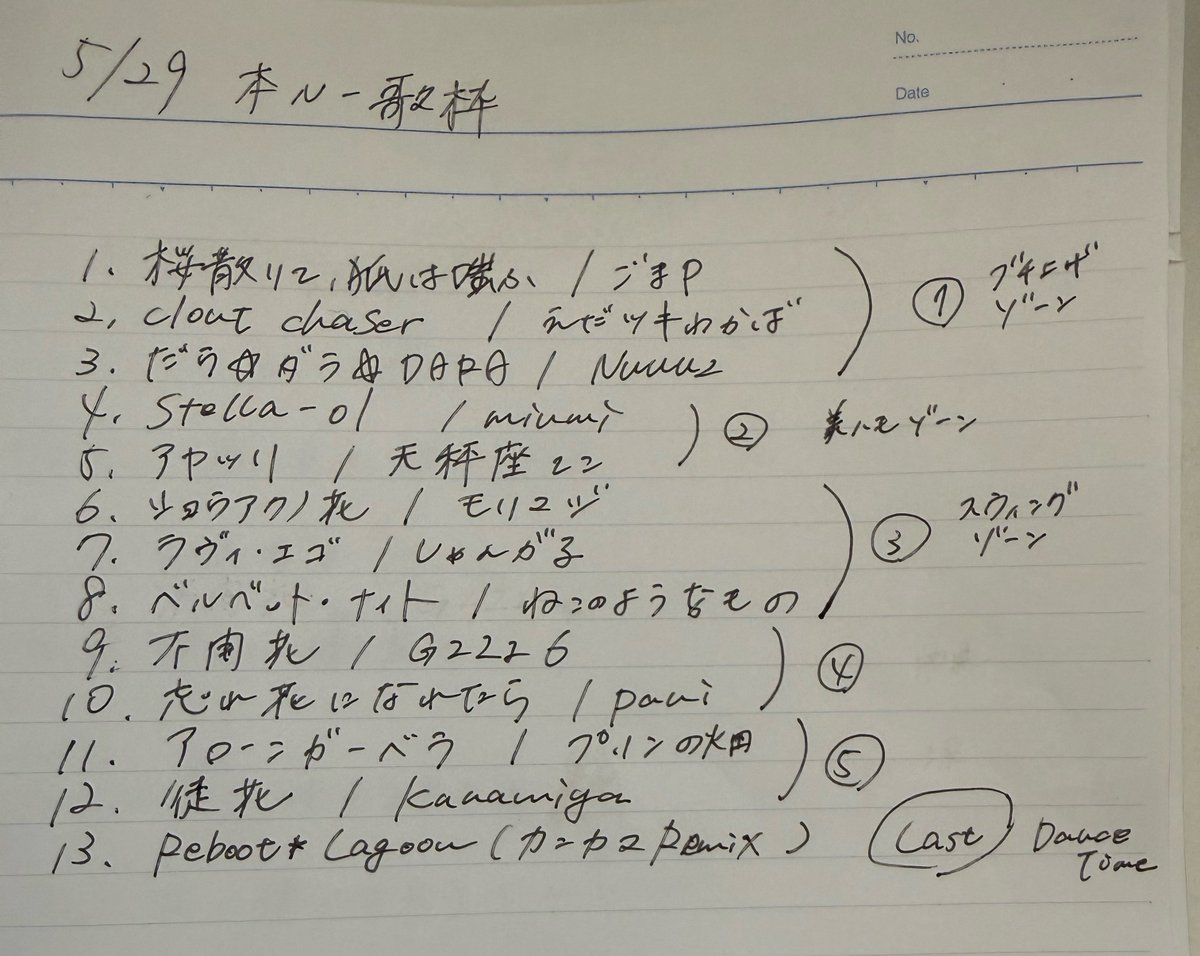 No.
Date
5/29 本ルー歌枠
1. 桜散りて、狐は嗤ふ / ごまP ① ブチ上げゾーン
2. clout chaser / えだツキわかば
3. だら☆ダラ☆DARA / Nuuuz
4. Stella-01 / miumi ② 美ハモゾーン
5. アヤツリ / 天秤座ミン
6. ショウアクノ花 / モリユウジ ③ スウィングゾーン
7. ラヴィ・エゴ / しゃんがる
8. ベルベット・ナイト / ねこのようなもの
9. 不凋花 / G2226 ④
10. 忘れ花になれたら / pami
11. アローンガーベラ / プリンの畑 ⑤
12. 徒花 / Kanamiya
13. Reboot*Lagoon (カンカコRemix) Last Dance Time